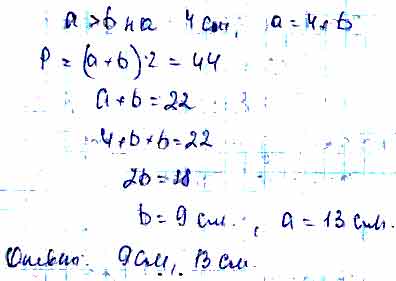 a > b на 4 см, a = 4 + b
P = (a + b) · 2 = 44
a + b = 22
4 + b + b = 22
2b = 18
b = 9 см, a = 13 см.
Ответ: 9 см, 13 см.